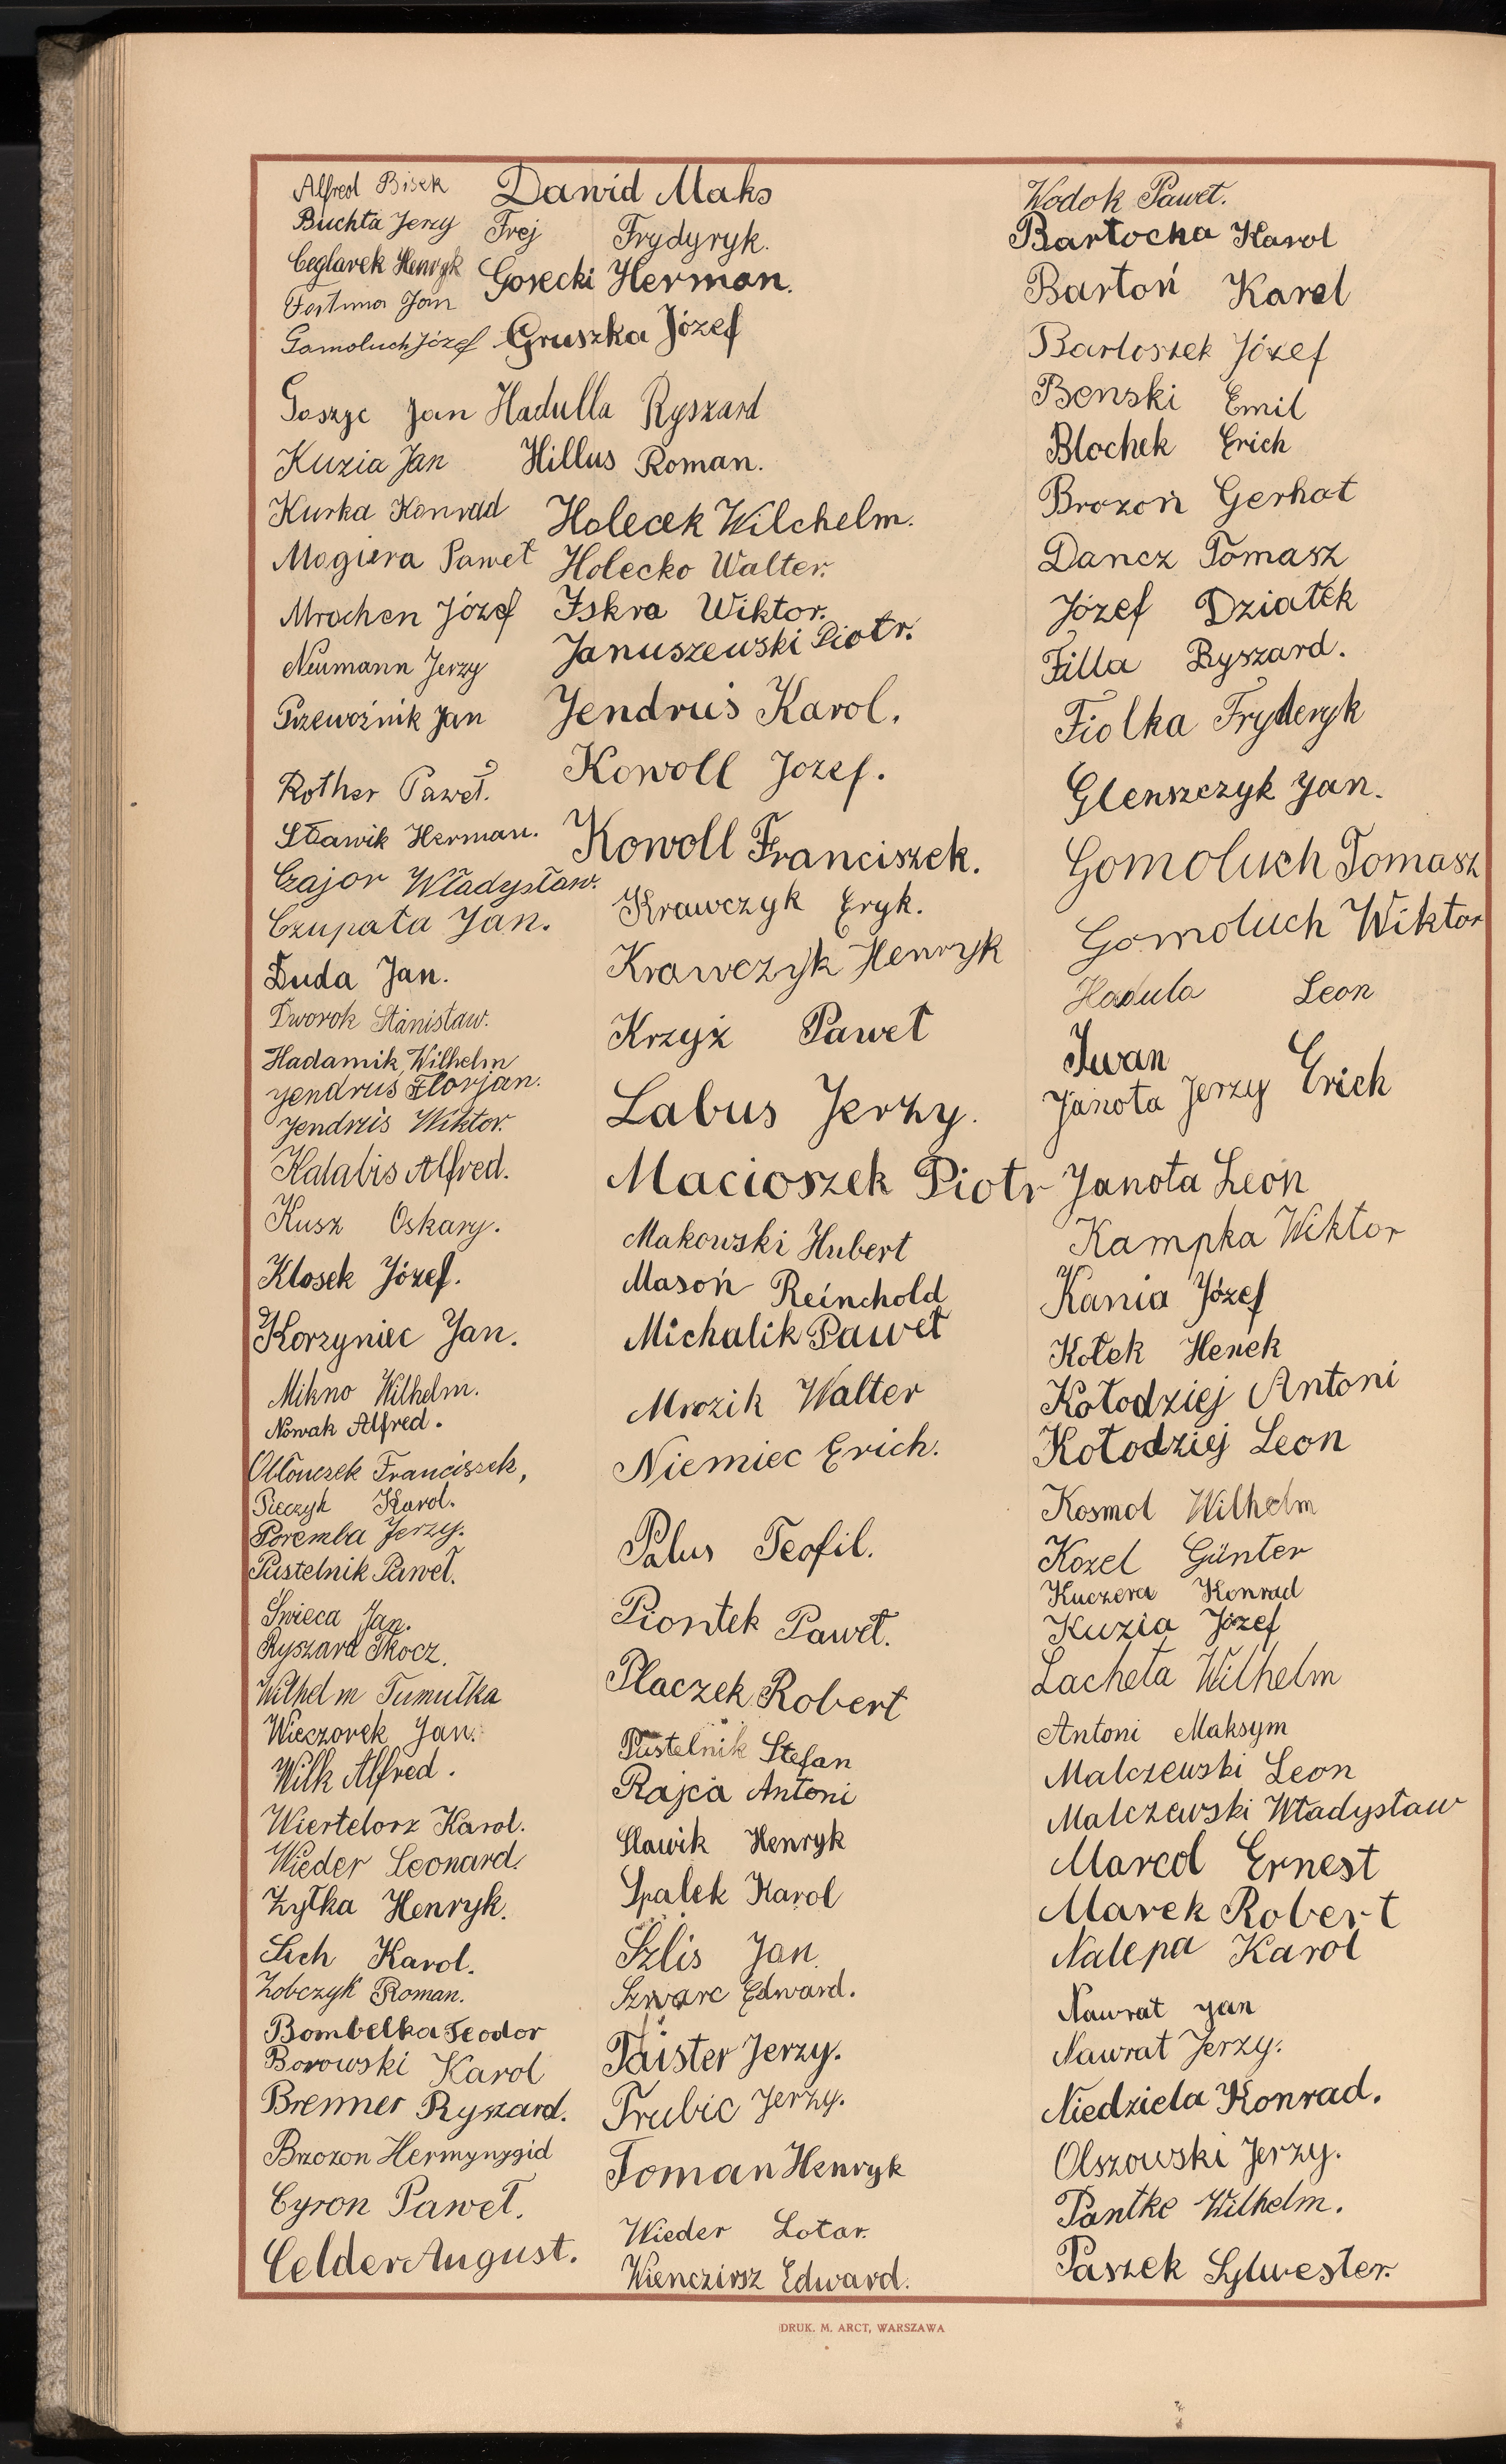 Alfred Bisek
Buchta Jerzy
Ceglarek Henryk
Fortuna Jan
Gamoluch Józef
Goszyc Jan
Kuzia Jan
Kurka Konrad
Magiera Paweł
Mrochen Józef
Neumann Jerzy
Przewoźnik Jan
Rother Paweł.
Sławik Herman.
Czajor Władysław.
Czupała Jan.
Duda Jan.
Dworok Stanisław.
Hadamik Wilhelm
Jendruś Florjan.
Jendruś Wiktor.
Kalabis Alfred.
Kusz Oskary.
Klosek Józef.
Korzyniec Jan.
Mikno Wilhelm.
Nowak Alfred.
Obłonczek Franciszek,
Pieczyk Karol.
Poremba Jerzy.
Pustelnik Paweł.
Świeca Jan.
Ryszard Tkocz.
Wilhelm Tumułka
Wieczorek Jan.
Wilk Alfred.
Wiertelorz Karol.
Wieder Leonard.
Żyłka Henryk.
Lich Karol.
Zobczyk Roman.
Bombelka Teodor
Borowski Karol
Brenner Ryszard.
Brzozon Hermynygid
Cyron Paweł.
Celder August.
Dawid Maks
Frej Frydyryk.
Gorecki Herman.
Gruszka Józef
Hadulla Ryszard
Hillus Roman.
Holecek Wilchelm.
Holecko Walter.
Iskra Wiktor.
Januszewski Piotr.
Jendruś Karol.
Kowoll Jozef.
Kowoll Franciszek.
Krawczyk Eryk.
Krawczyk Henryk
Krzyż Paweł
Labus Jerzy.
Macioszek Piotr
Makowski Hubert
Masoń Reinchold
Michalik Paweł
Mrozik Walter
Niemiec Erich.
Palus Teofil.
Piontek Paweł.
Placzek Robert
Pustelnik Stefan
Rajca Antoni
Slawik Henryk
Spalek Karol
Szlis Jan.
Szwarc Edward.
Taister Jerzy.
Trubic Jerzy.
Toman Henryk
Wieder Lotar.
Wienczirsz Edward.
Wodok Paweł.
Bartocha Karol
Bartoń Karol
Bartoszek Józef
Benski Emil
Blochek Erich
Brozoń Gerhat
Dancz Tomasz
Józef Dziatek
Filla Ryszard.
Fiolka Fryderyk
Glenszczyk Jan.
Gomoluch Tomasz
Gomoluch Wiktor
Hadula Leon
Iwan Erich
Janota Jerzy
Janota Leon
Kampka Wiktor
Kania Józef
Kołek Henek
Kołodziej Antoni
Kołodziej Leon
Kosmol Wilhelm
Kozel Günter
Kuczera Konrad
Kuzia Józef
Lacheta Wilhelm
Antoni Maksym
Malczewski Leon
Malczewski Władysław
Marcol Ernest
Marek Robert
Nalepa Karol
Nawrat Jan
Nawrat Jerzy.
Niedziela Konrad.
Olszowski Jerzy.
Pantke Wilhelm.
Paszek Sylwester.
DRUK. M. ARCT, WARSZAWA